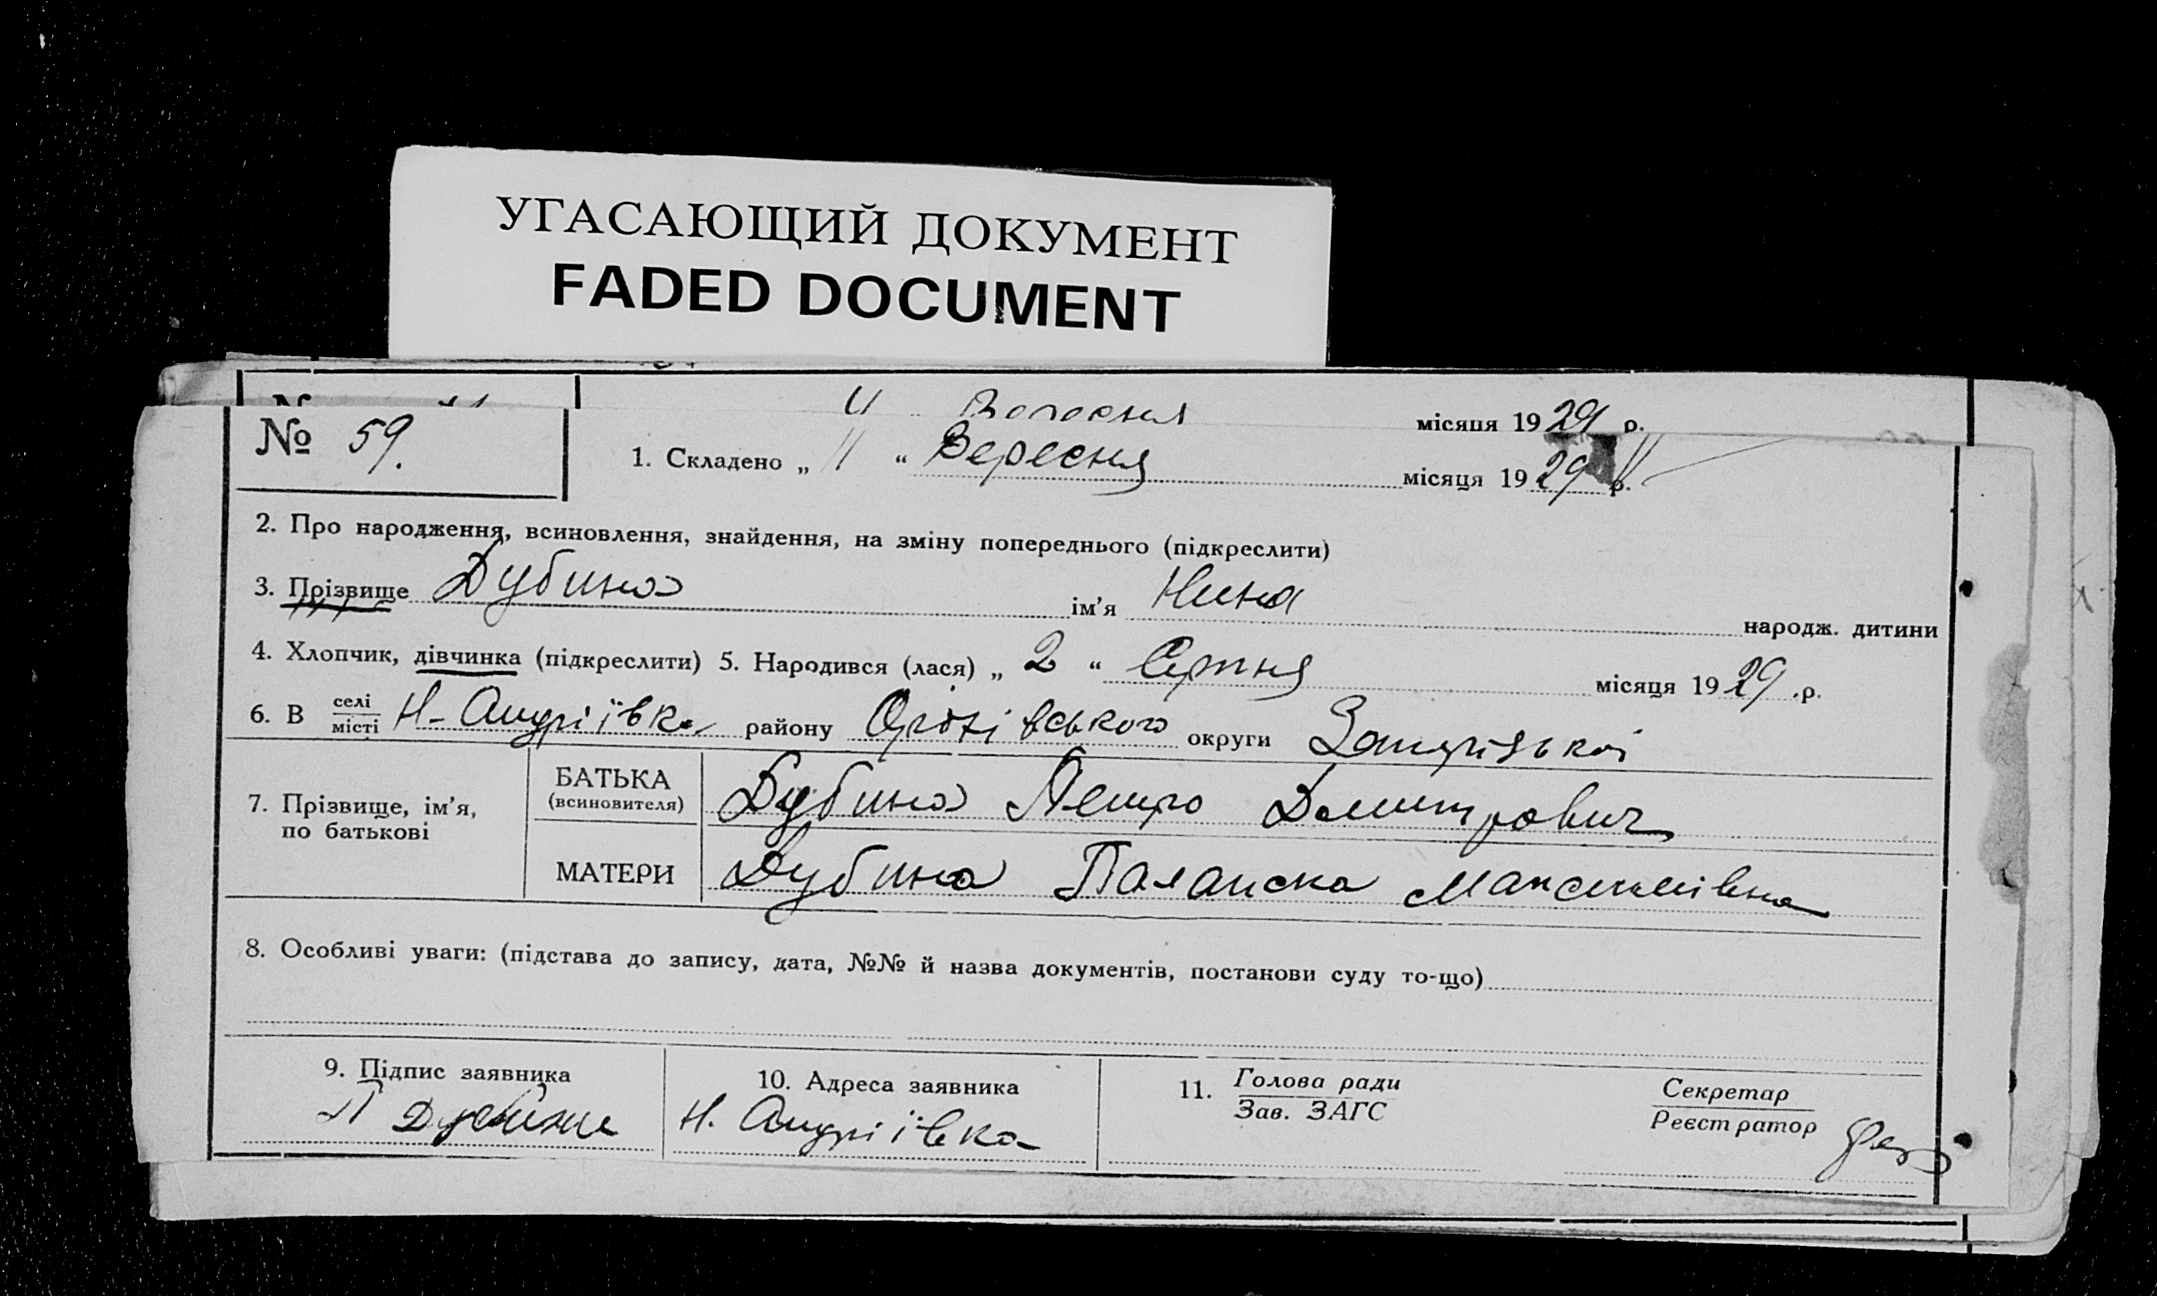 УГАСАЮЩИЙ ДОКУМЕНТ
FADED DOCUMENT
місяця 1929 р.
№ 59.
1. Складено „ 11 “ Вересня місяця 1929 р.
2. Про народження, всиновлення, знайдення, на зміну попереднього (підкреслити)
3. Прізвище Дубина ім’я Нина народж. дитини
4. Хлопчик, дівчинка (підкреслити) 5. Народився (лася) „ 2 “ Серпня місяця 1929 р.
6. В селі місті Н-Андріївка району Оріхівського округи Запорізької
7. Прізвище, ім’я, по батькові
БАТЬКА (всиновителя) Дубина Петро Дмитрович
МАТЕРИ Дубина Палажка Максимівна
8. Особливі уваги: (підстава до запису, дата, №№ й назва документів, постанови суду то-що)
9. Підпис заявника
П Дубина
10. Адреса заявника
Н. Андріївка
11. Голова ради
Зав. ЗАГС
Секретар
Реєстратор